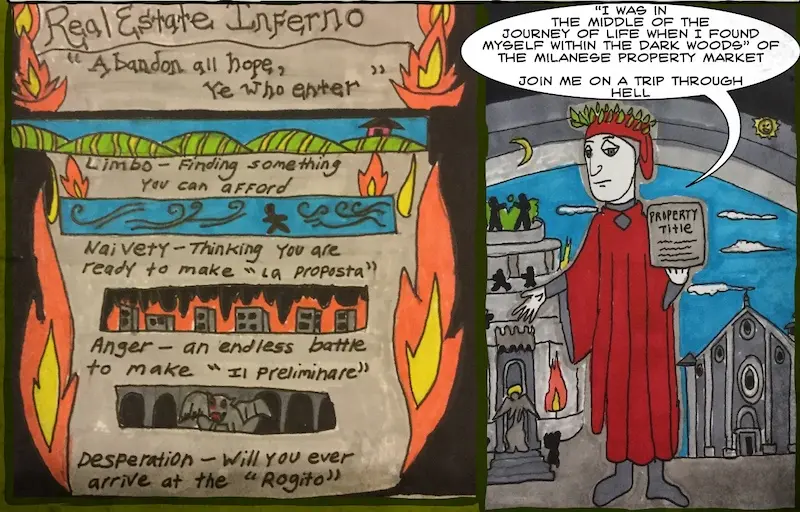 Real Estate Inferno
"Abandon all hope,
Ye who enter"
Limbo - Finding something
you can afford
Naivety - Thinking you are
ready to make "La proposta"
Anger - an endless battle
to make "Il Preliminare"
Desperation - Will you ever
arrive at the "Rogito"
"I WAS IN
THE MIDDLE OF THE
JOURNEY OF LIFE WHEN I FOUND
MYSELF WITHIN THE DARK WOODS" OF
THE MILANESE PROPERTY MARKET
JOIN ME ON A TRIP THROUGH
HELL
PROPERTY
Title